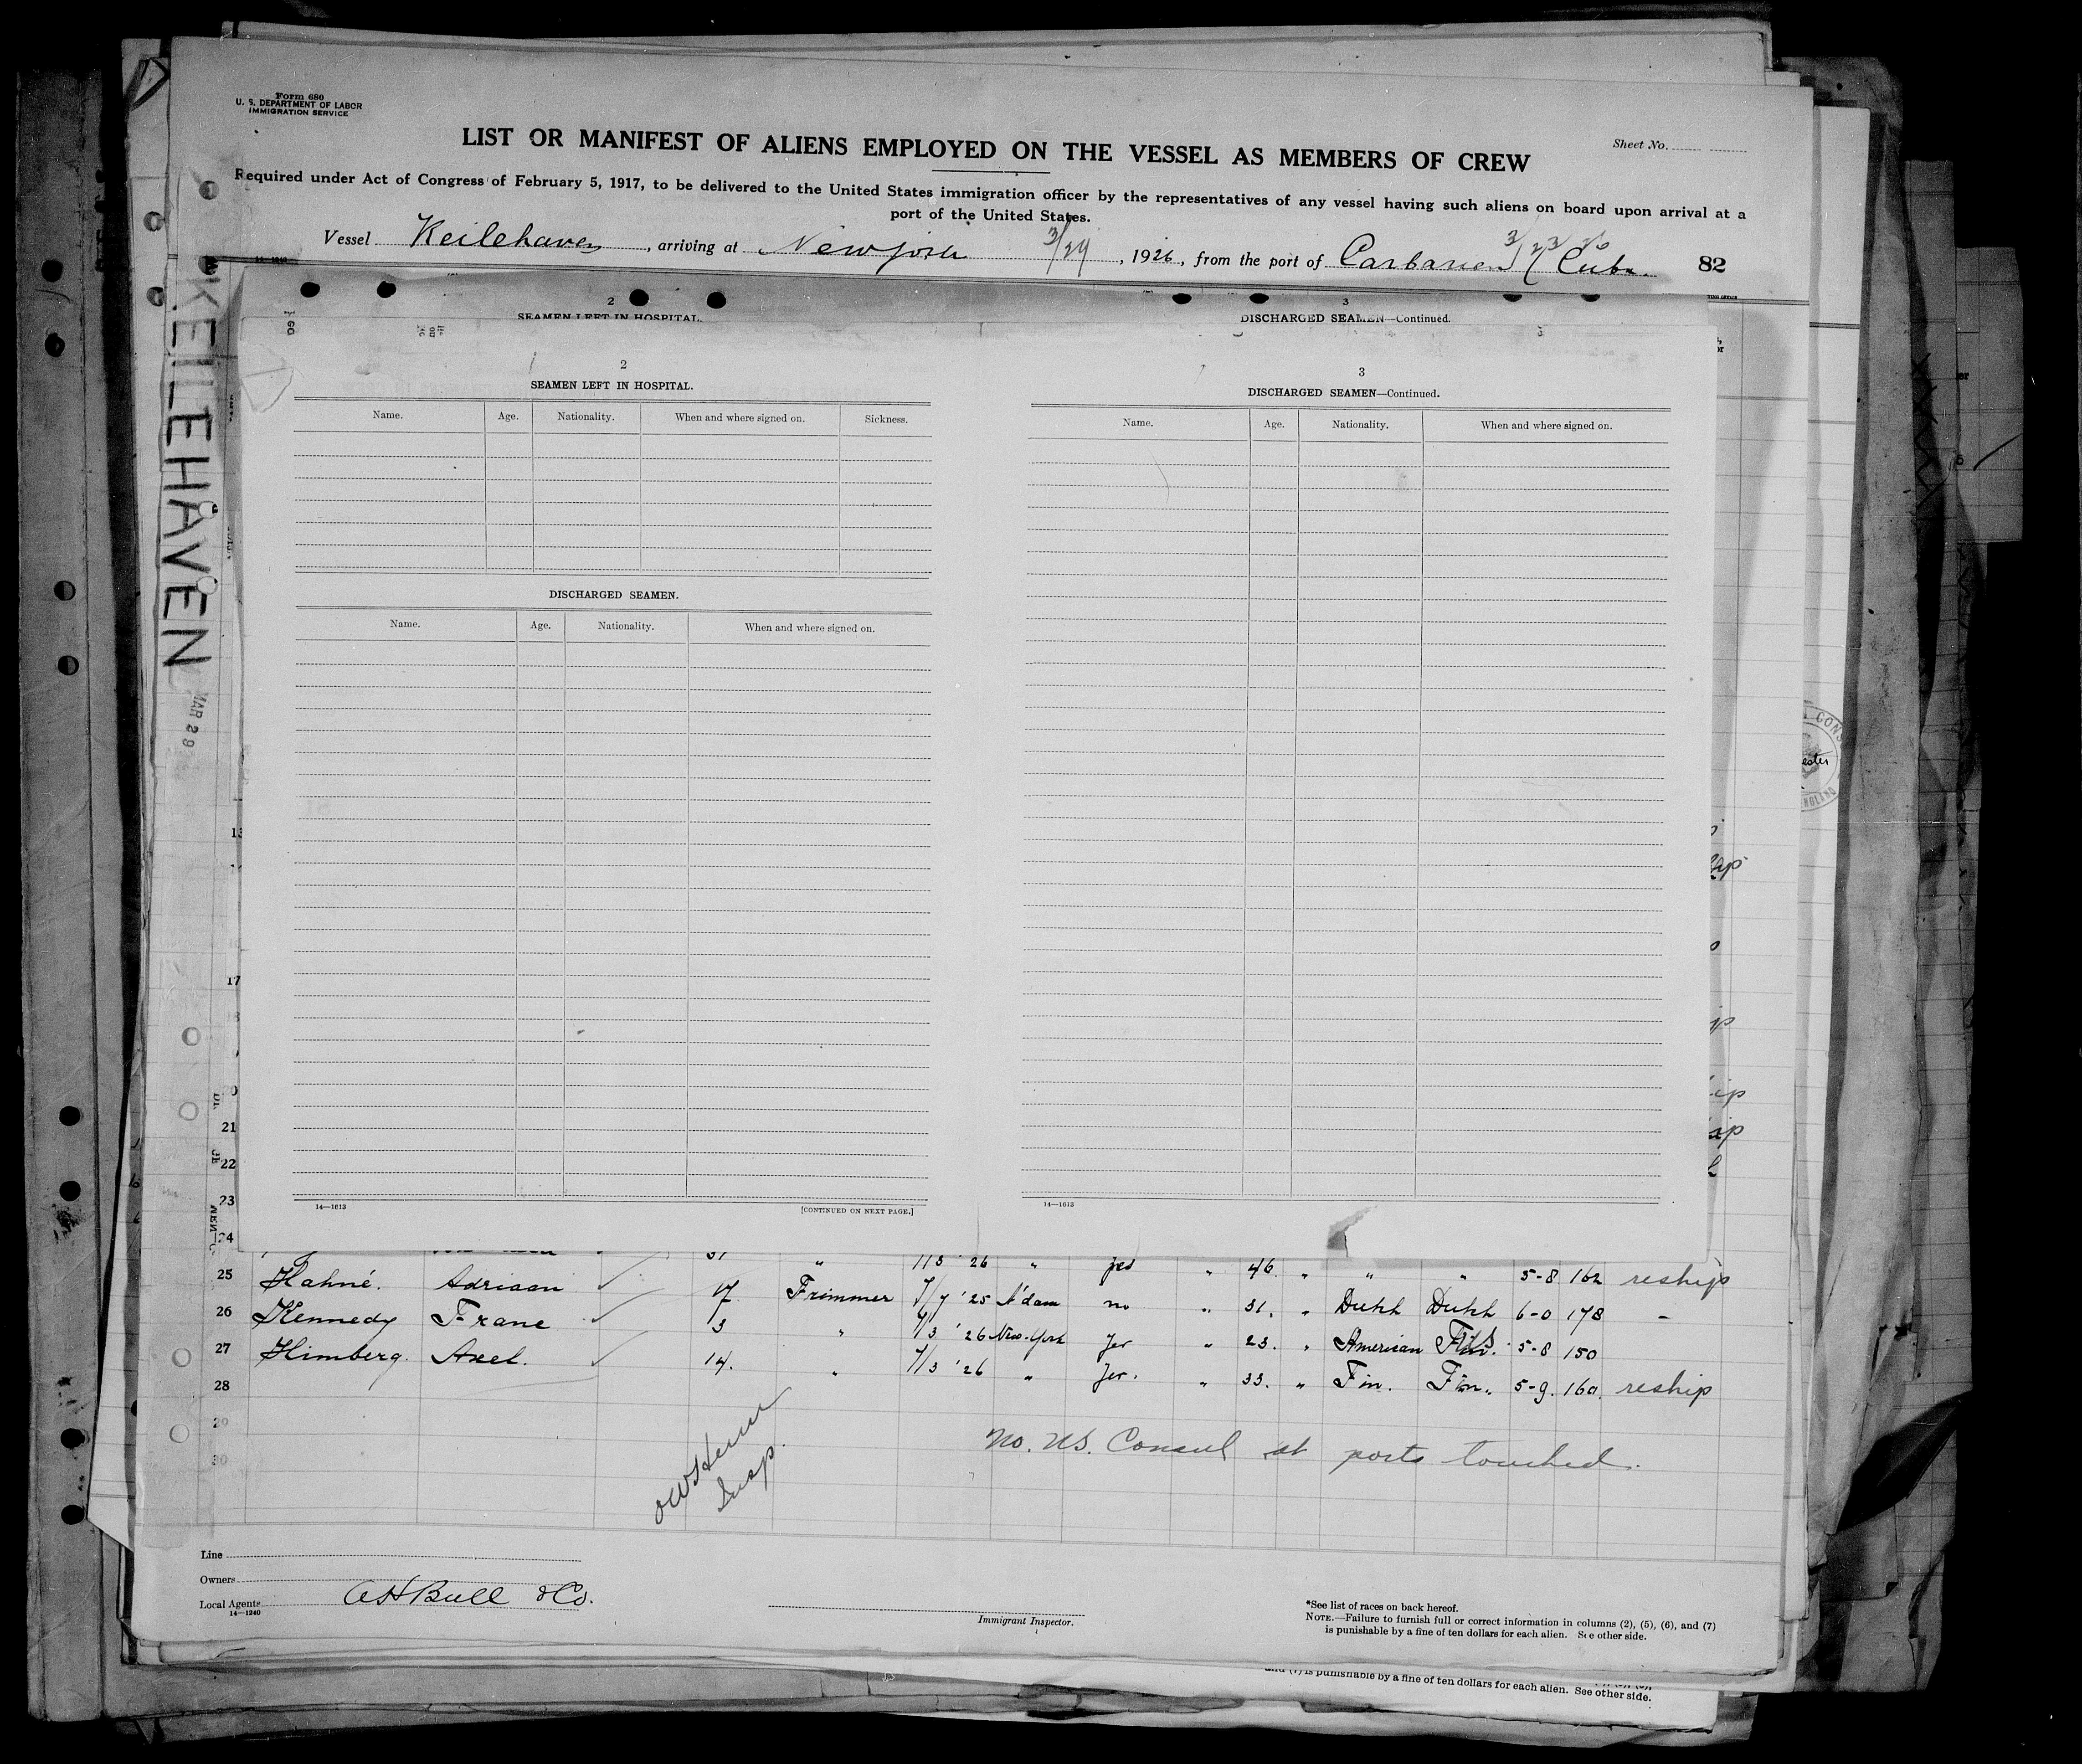 Form 680
U. S. DEPARTMENT OF LABOR
IMMIGRATION SERVICE
Sheet No.
LIST OR MANIFEST OF ALIENS EMPLOYED ON THE VESSEL AS MEMBERS OF CREW
Required under Act of Congress of February 5, 1917, to be delivered to the United States immigration officer by the representatives of any vessel having such aliens on board upon arrival at a
port of the United States.
Vessel Keilehaven, arriving at New York 3/29, 1926, from the port of 3/23/26 Cuba. 82
KEILEHAVEN
MAR 29
2
SEAMEN LEFT IN HOSPITAL.
3
DISCHARGED SEAMEN—Continued.
2
SEAMEN LEFT IN HOSPITAL.
Name. Age. Nationality. When and where signed on. Sickness.
DISCHARGED SEAMEN.
Name. Age. Nationality. When and where signed on.
14—1613
[CONTINUED ON NEXT PAGE.]
3
DISCHARGED SEAMEN—Continued.
Name. Age. Nationality. When and where signed on.
14—1613
17
21
22
23
24
" 26 " yes " 46 " " " 5-8 162 reship
25 Hahné. Adriaan 17 Trimmer '25 A'dam no " 31. " Dutch Dutch 6-0 178 -
26 Kennedy Frane 3 " /3 '26 New-York Yes " 23. " American 5-8 150
27 Himberg. Axel. 14. " 7/3 '26 " Yes. " 33. " Fin. Fin. 5-9. 160. reship
28
29
30
No. US. Consul at ports touched.
Insp.
Line
Owners
Local Agents A H Bull & Co.
14—1240
Immigrant Inspector.
*See list of races on back hereof.
NOTE.—Failure to furnish full or correct information in columns (2), (5), (6), and (7)
is punishable by a fine of ten dollars for each alien. See other side.
and (7) is punishable by a fine of ten dollars for each alien. See other side.